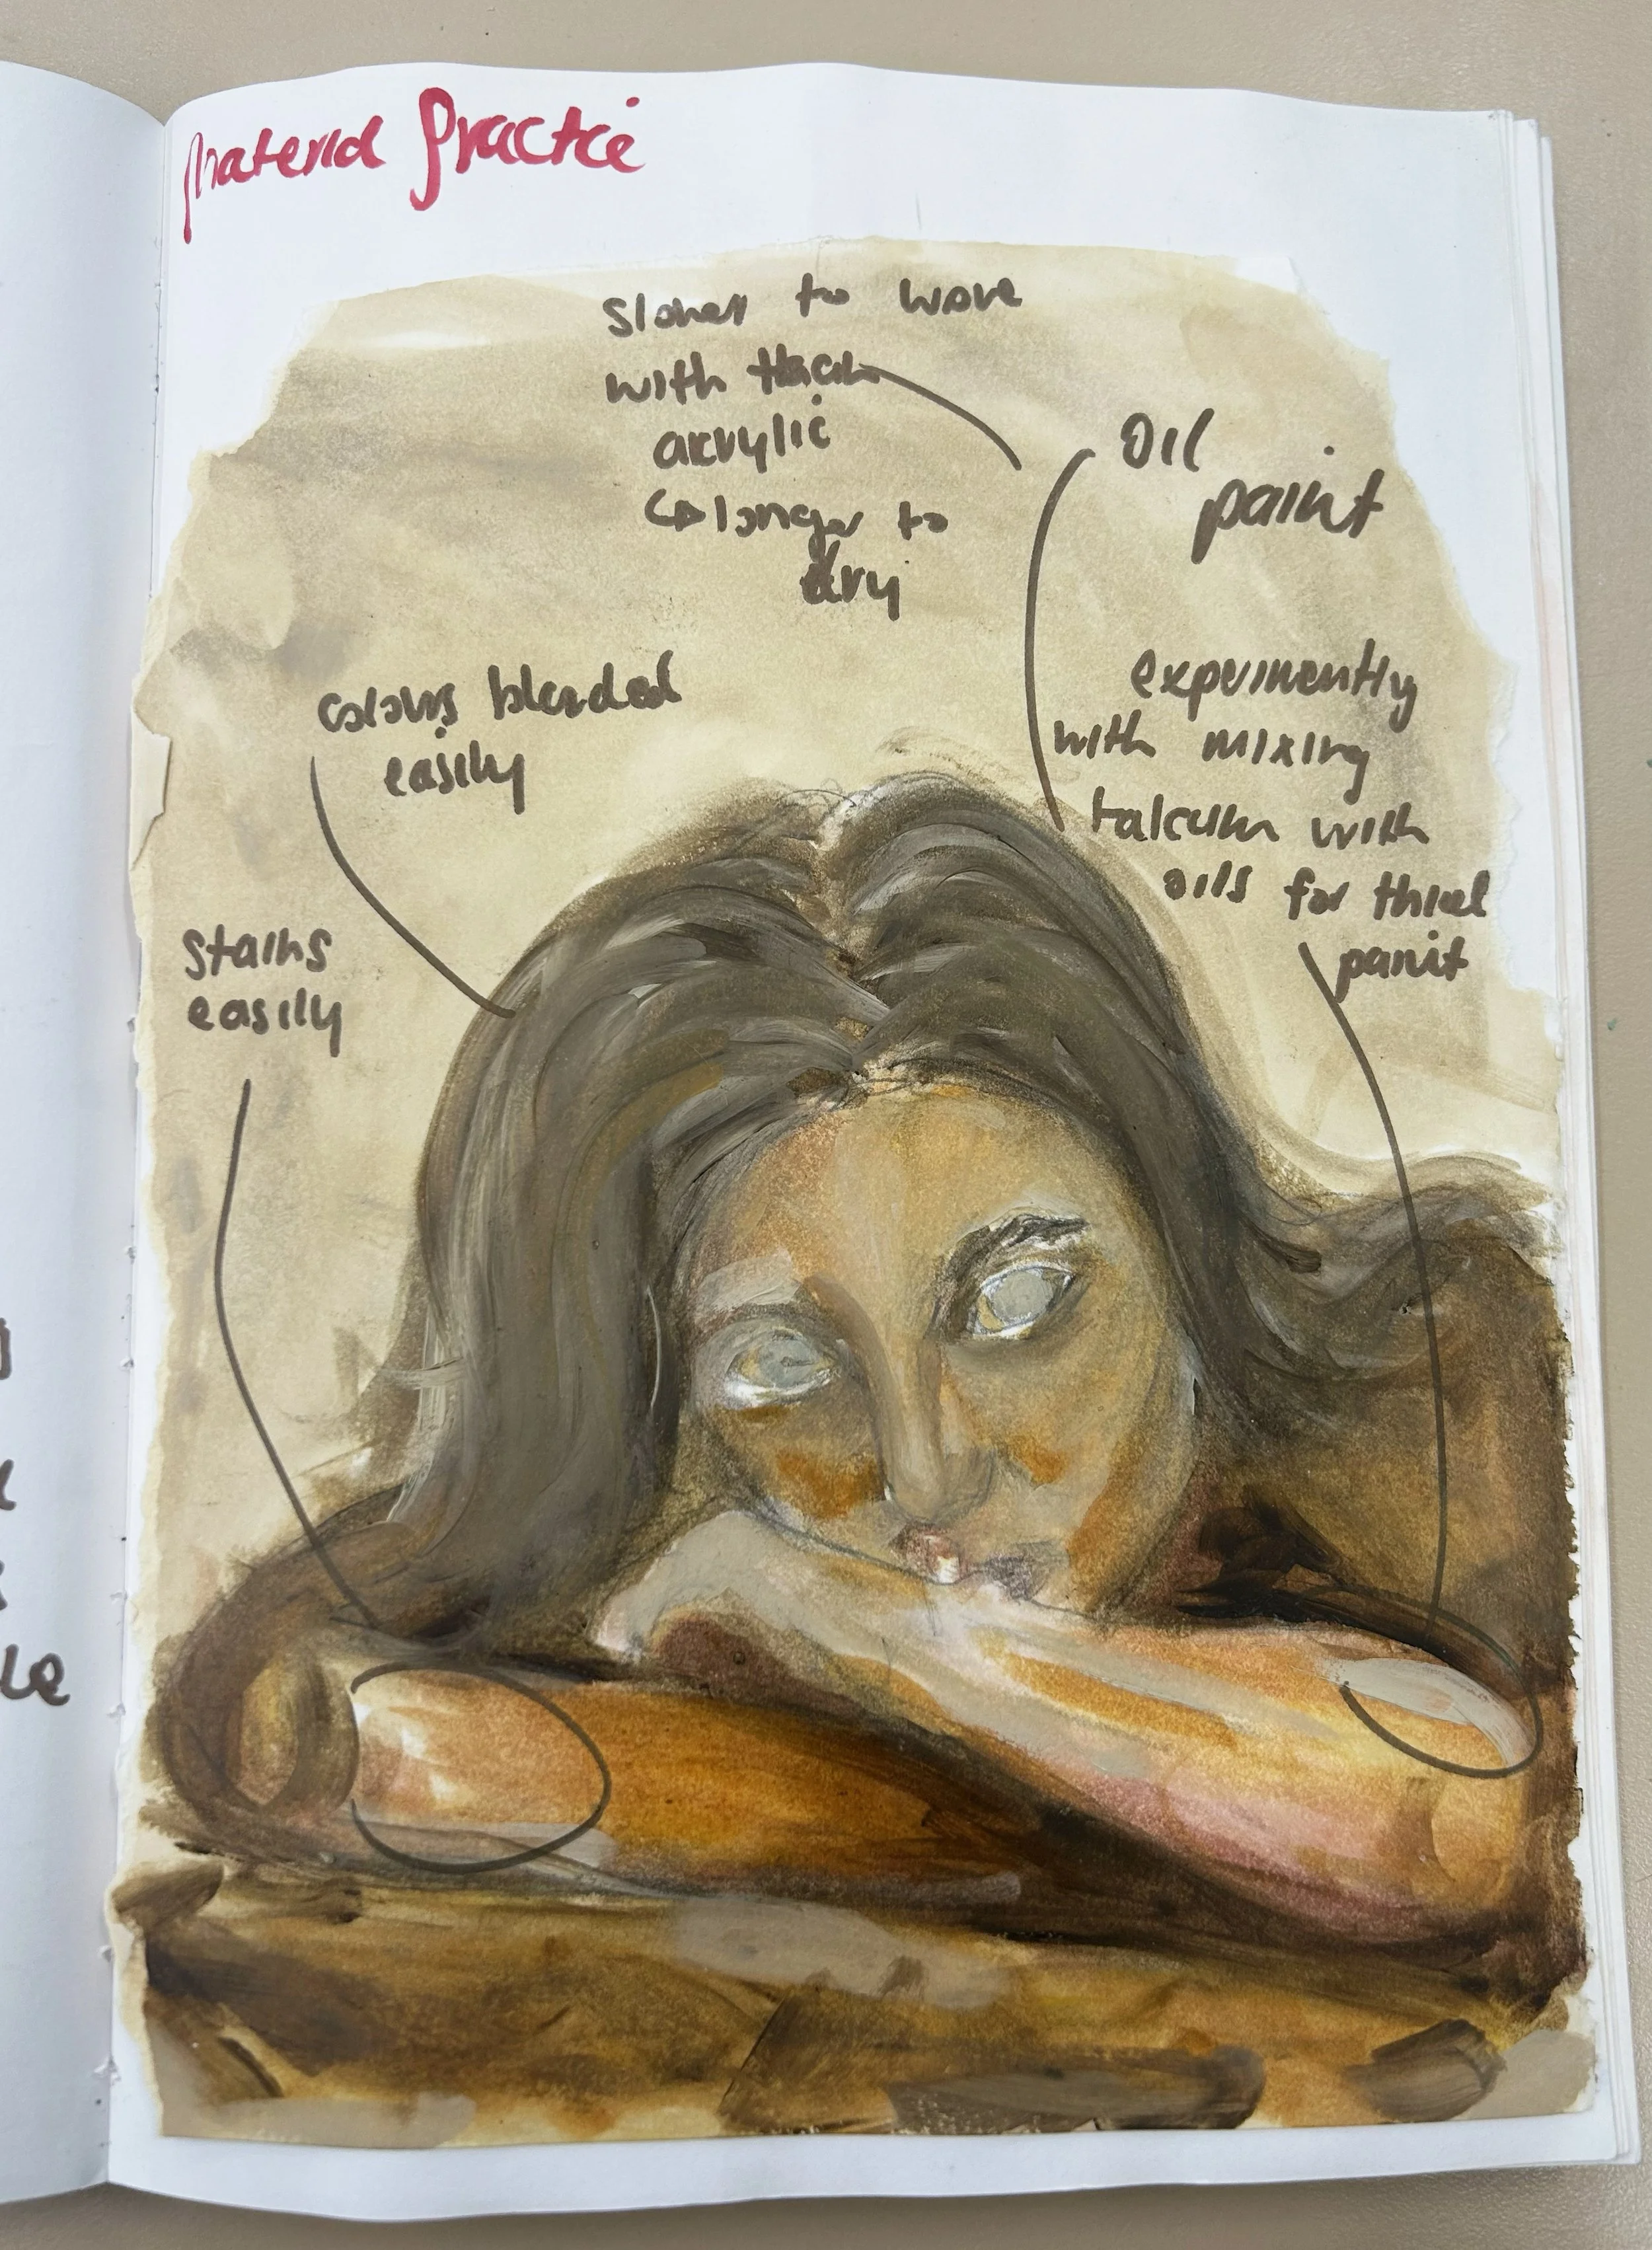 Material Practice
Slower to work
with than
acrylic
↳ longer to
dry
Oil
paint
colours blended
easily
experimently
with mixing
talcum with
oils for thick
paint
Stains
easily